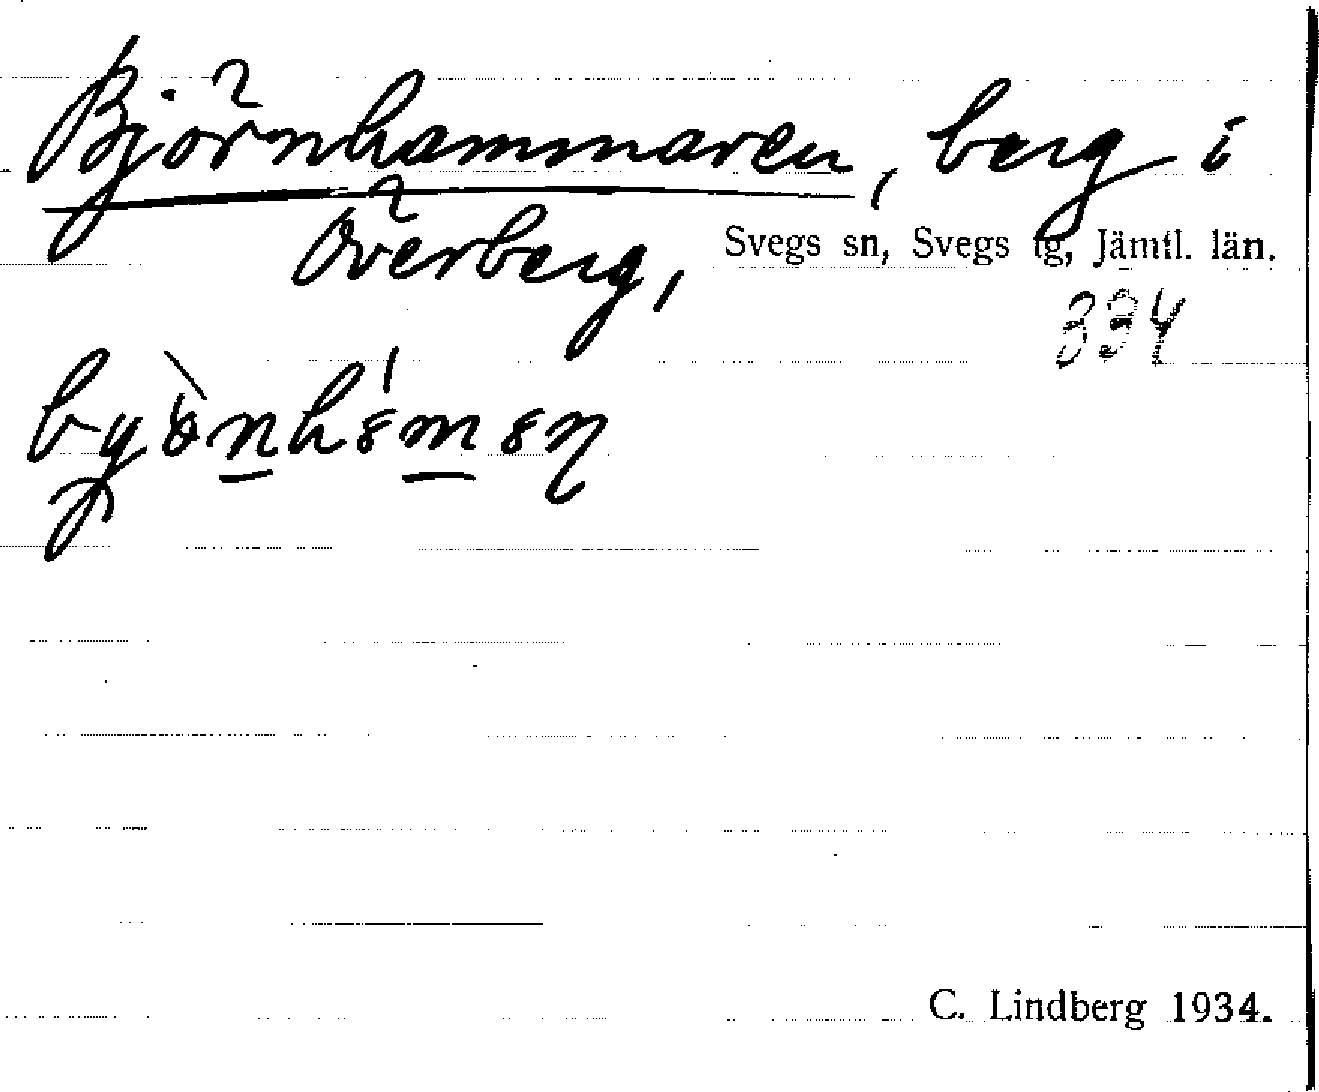 Björnhammaren, berg i
Överberg, Svegs sn, Svegs tg, Jämtl. län.
334
C. Lindberg 1934.